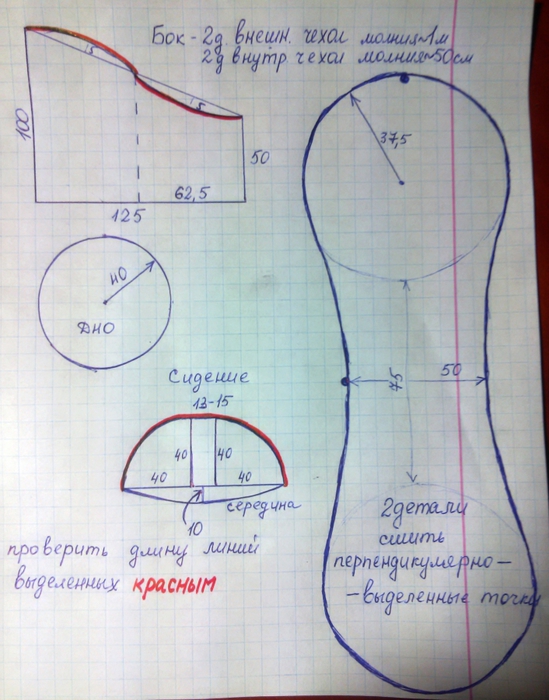 Бок - 2д. внешн. чехол молния ~ 1м
2д внутр. чехол молния ~ 50 см
5
5
100
50
62,5
125
37,5
40
ДНО
75
50
Сидение
13-15
40
40
40
40
середина
10
проверить длину линий
выделенных красным
2 детали
сшить
перпендикулярно -
- выделенные точки